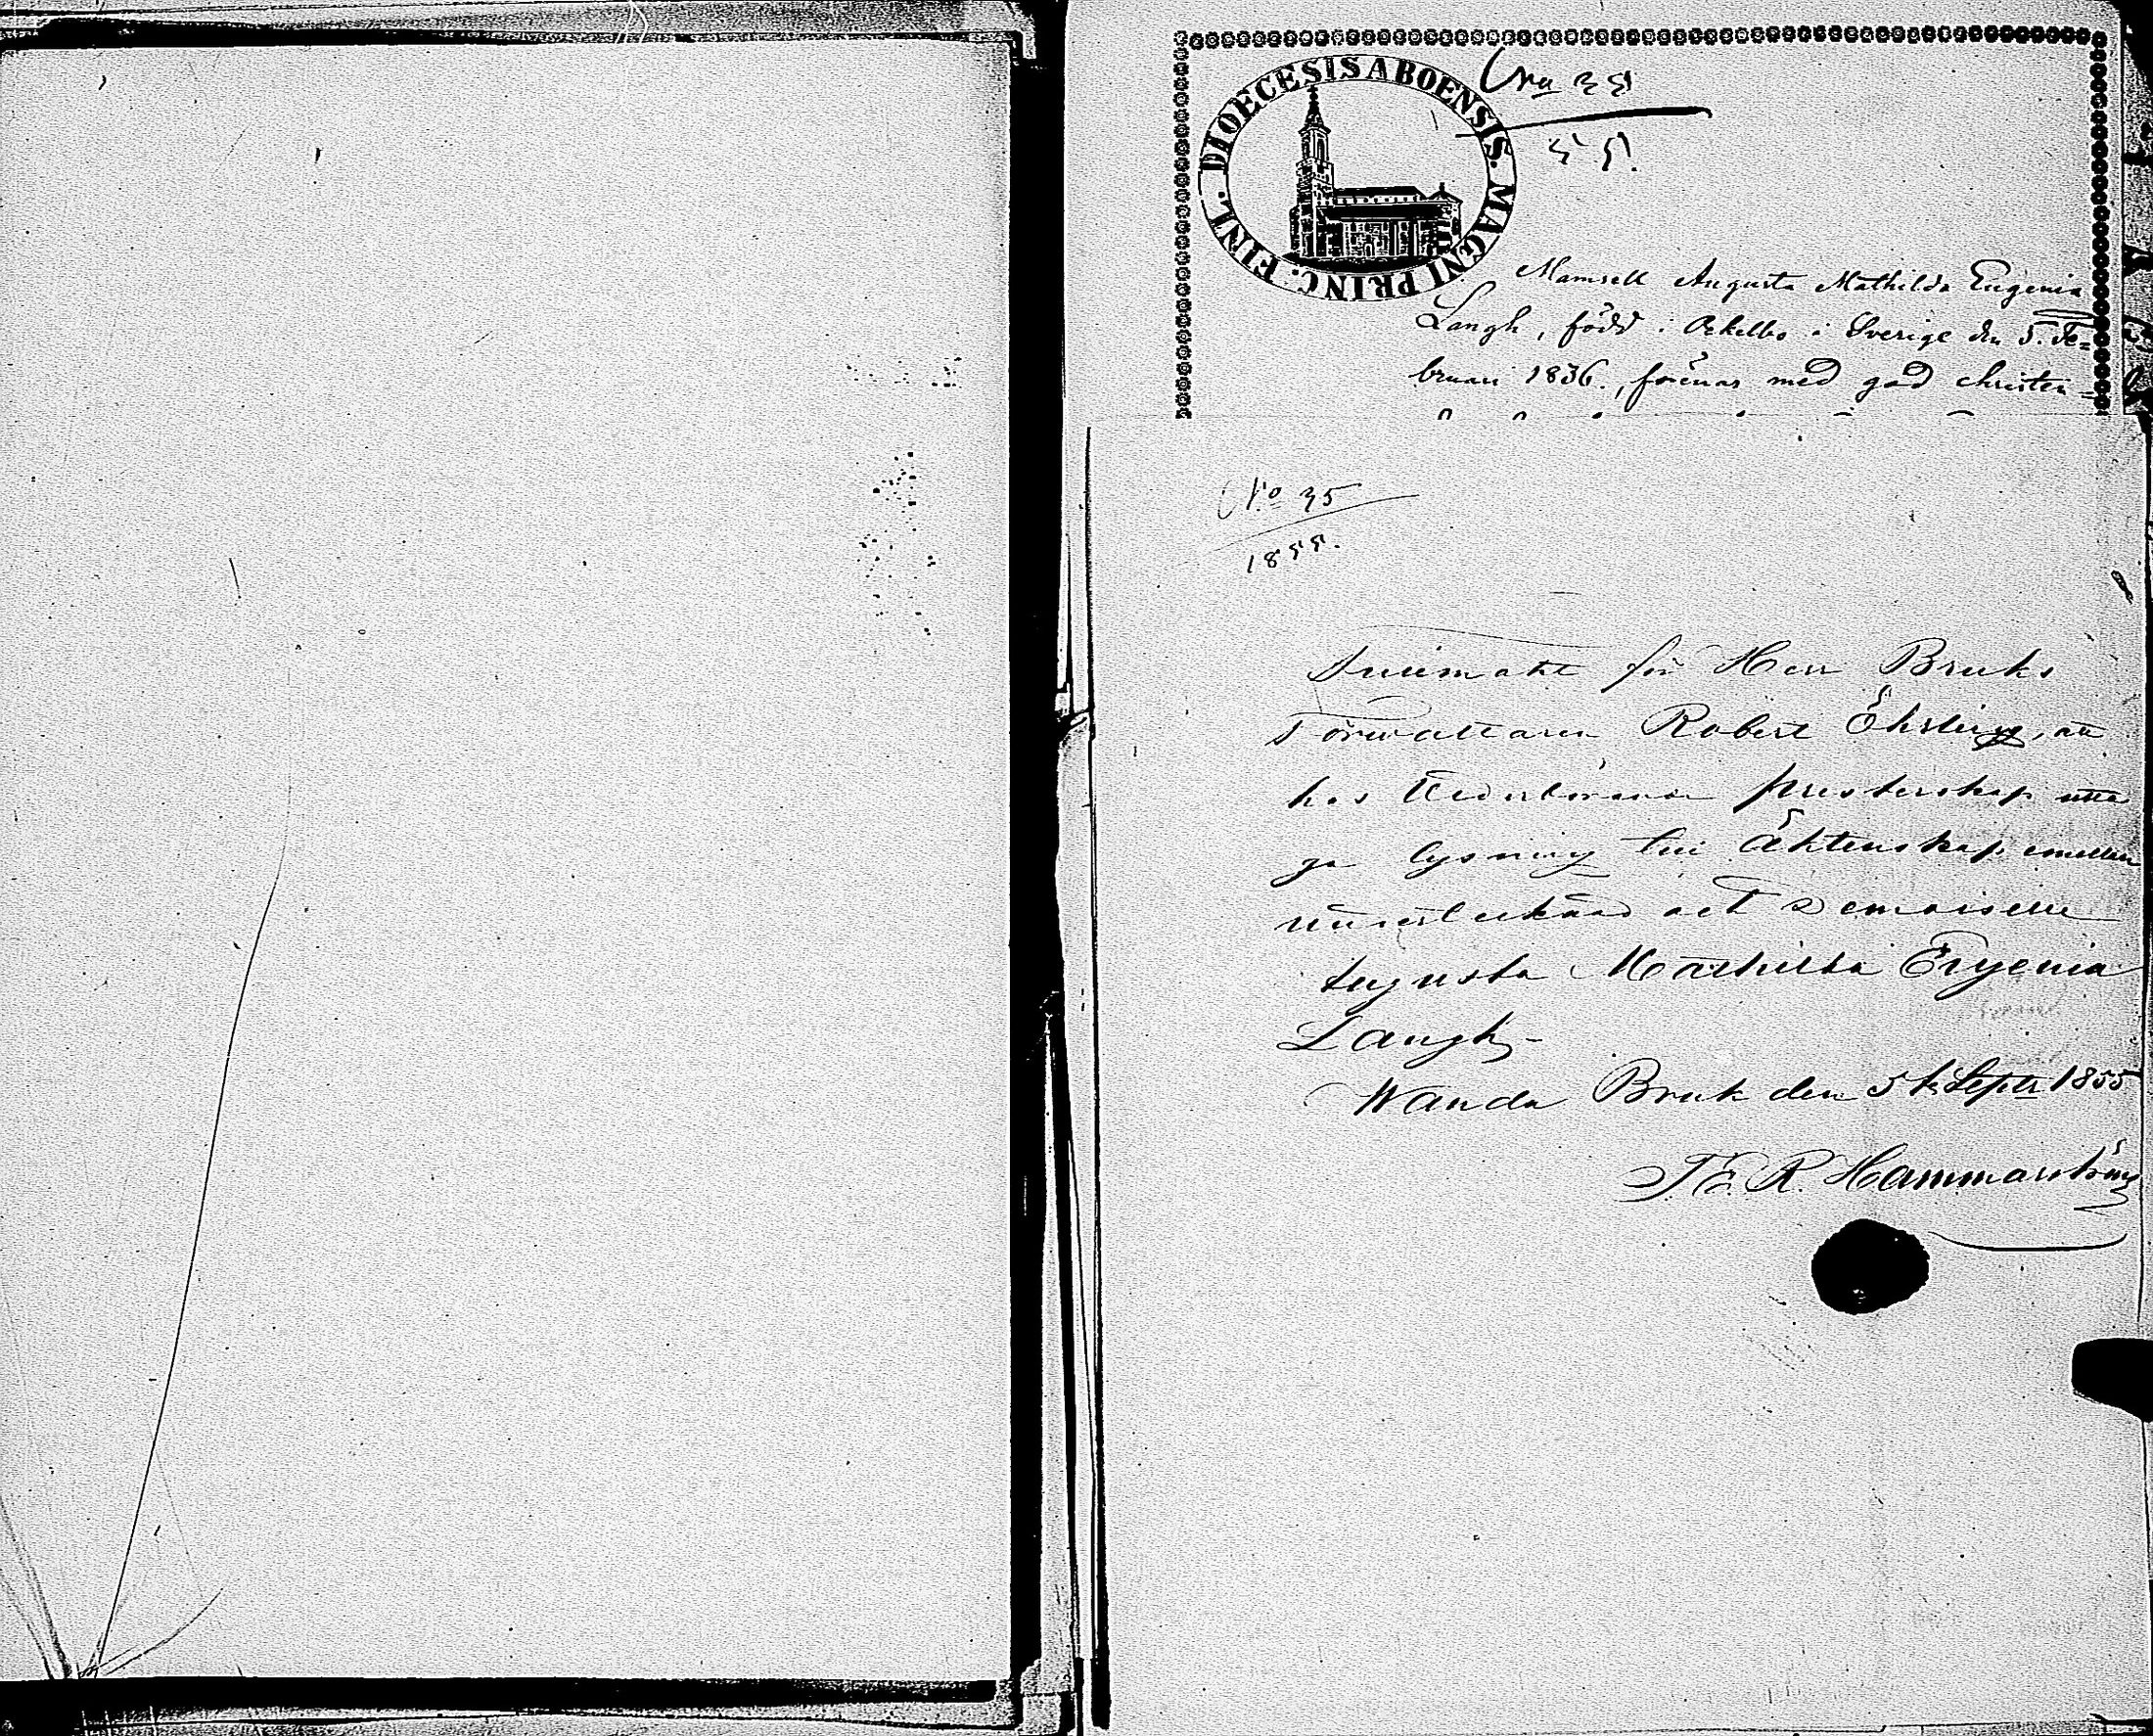 DIOECESIS ABOENSIS. MAGNI PRINC. FINL.
No 35
55.
Mamsell Augusta Mathilda Eugenia
Langh, född i Ockelbo i Sverige den 5. Fe=
bruari 1836., förenar med god christen
No 35
1855.
för Herr Bruks
Förwaltaren Robert Öhrling, att
hos Wederbörande presterskap utta
ga lysning till Äktenskap emellan
och Demoiselle
Augusta Mathilda Eugenia
Langh
Wanda Bruk den 5 Septr 1855
Hammarström